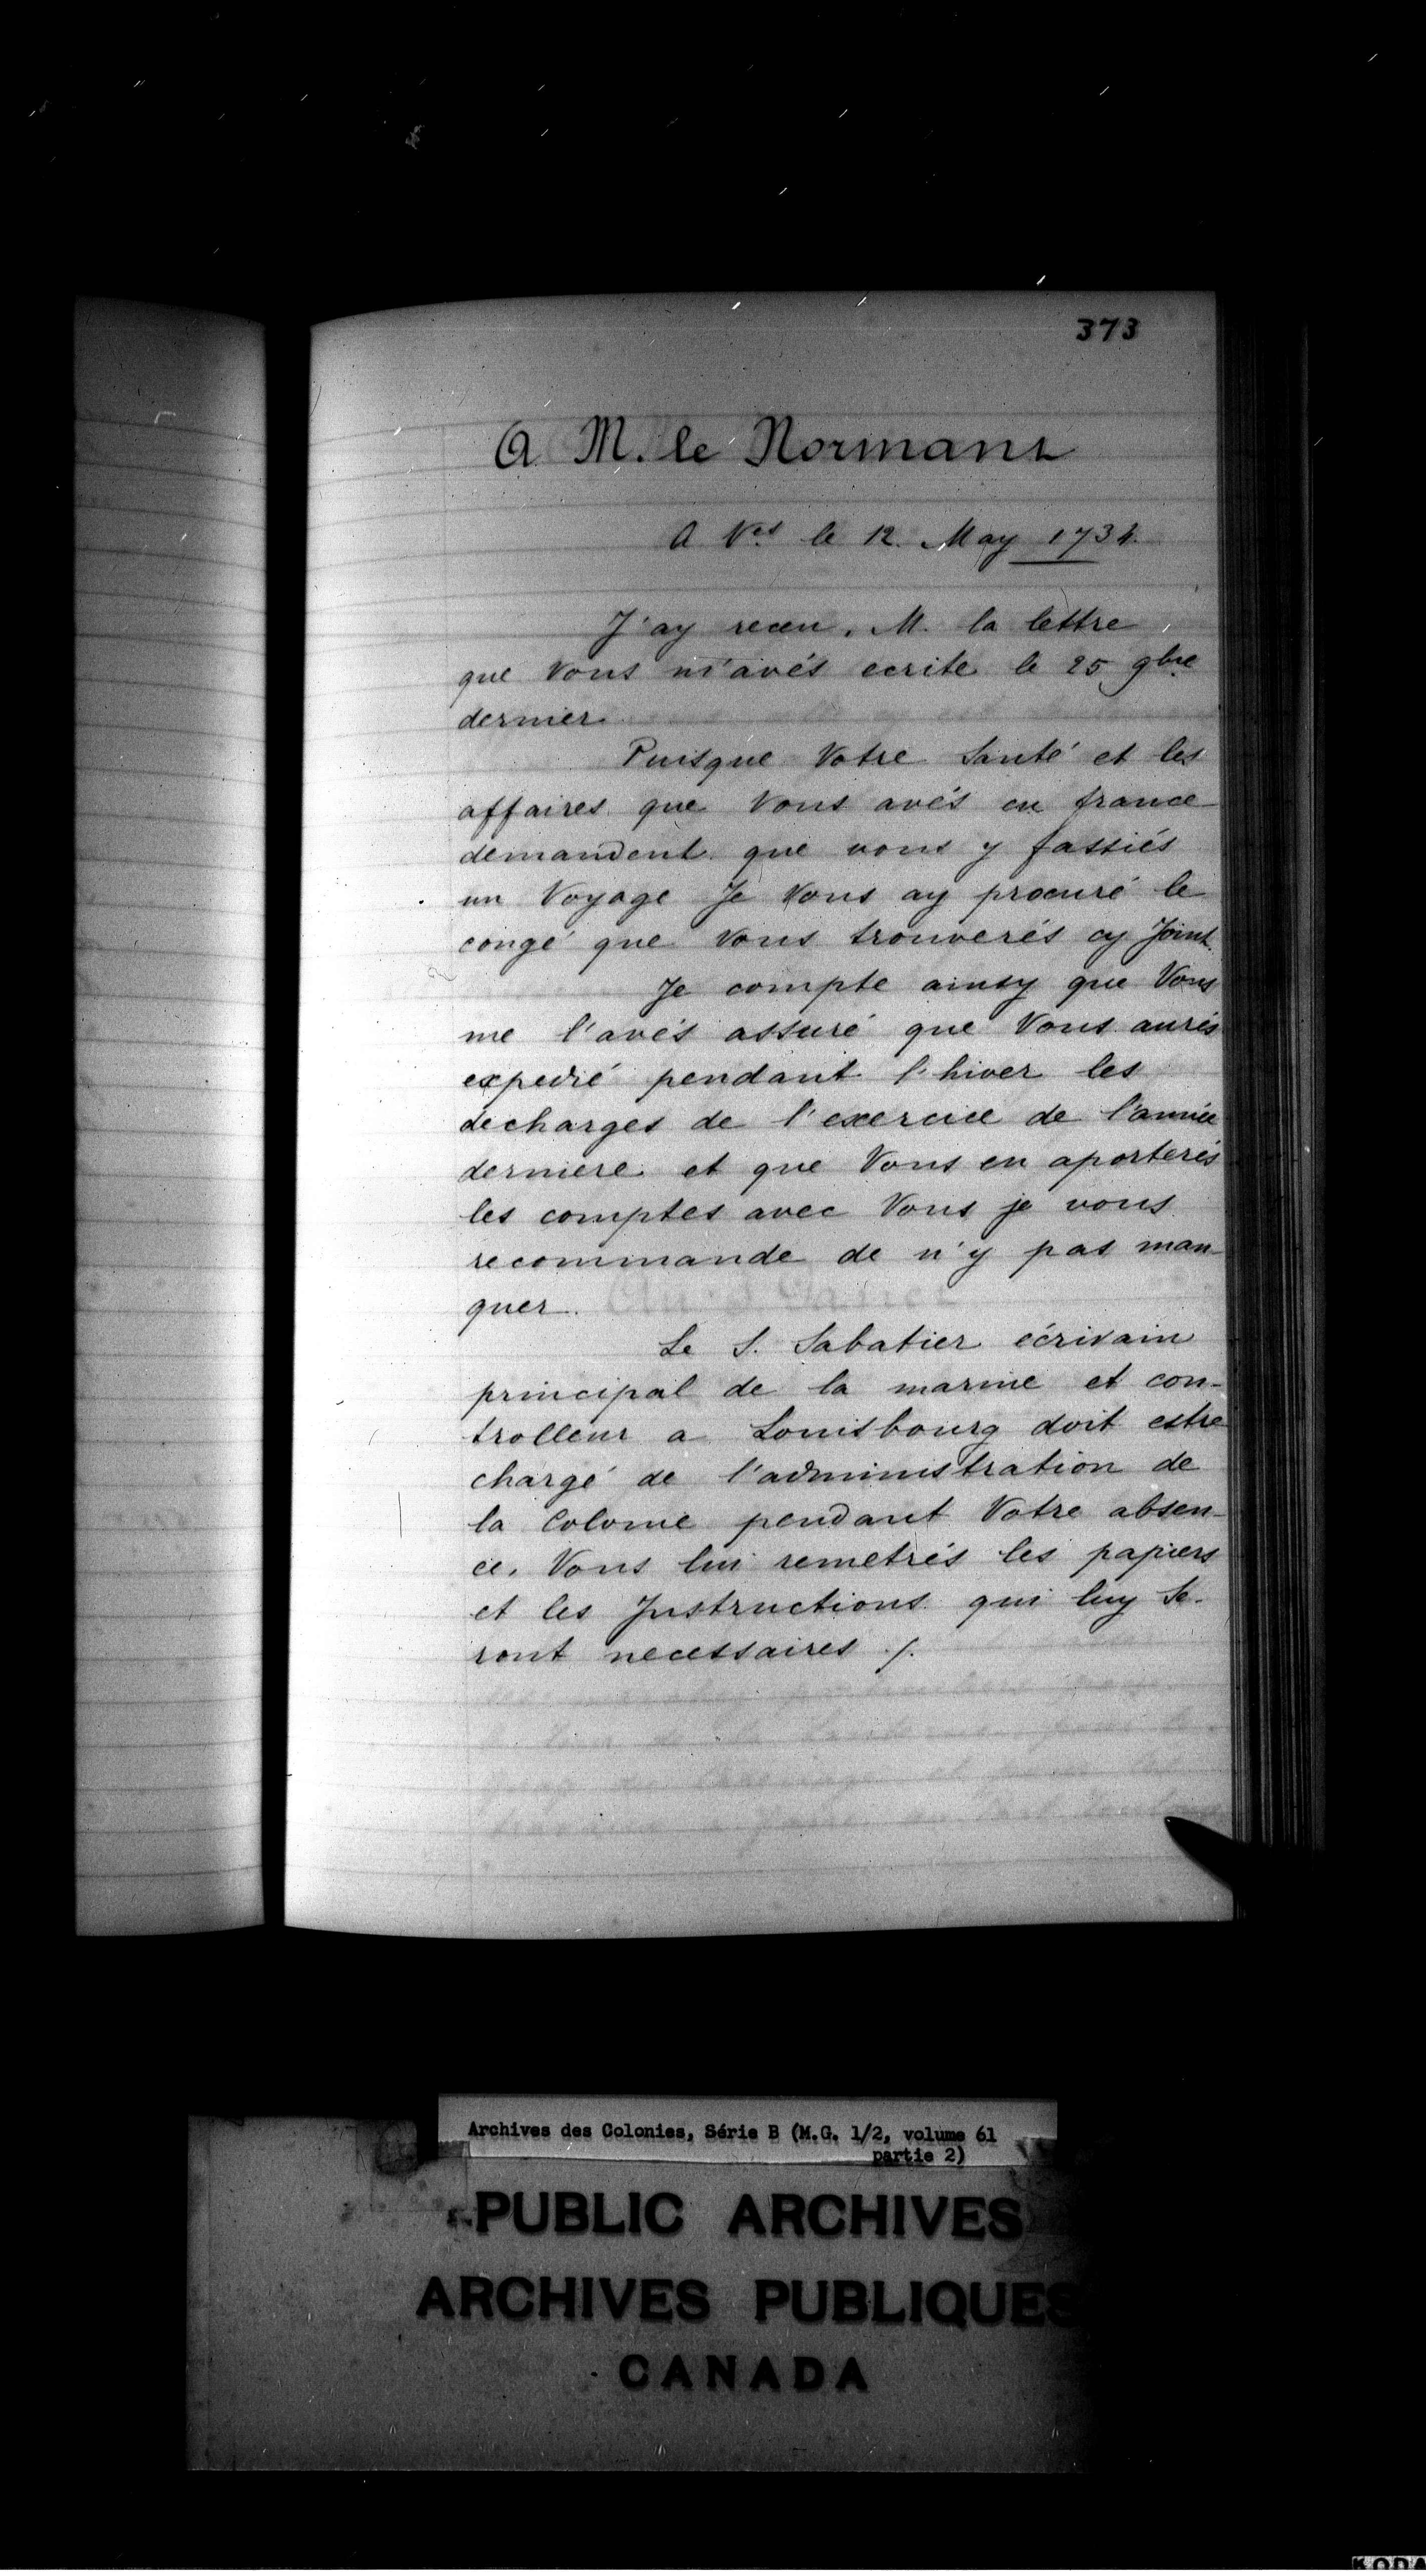 373
A M. le Normant
A Ves le 12. May 1734.
J'ay receu, M. la lettre
que Vous m'avés ecrite le 25 9bre
dernier.
Puisque Votre Santé et les
affaires que Vous avés en france
demandent que vous y fassiés
un Voyage Je Vous ay procuré le
congé que Vous trouverés cy Joint.
Je compte ainsy que Vous
me l'avés assuré que Vous aurés
expedié pendant l'hiver les
decharges de l'exercice de l'année
derniere et que Vous en aporterés
les comptes avec Vous je vous
recommande de n'y pas man-
quer.
Le S. Sabatier écrivain
principal de la marine et con-
trolleur a Louisbourg doit estre
chargé de l'administration de
la Colonie pendant Votre absen-
ce. Vous lui remetrés les papiers
et les Instructions qui luy Se-
ront necessaires ./.
Archives des Colonies, Série B (M.G. 1/2, volume 61
partie 2)
PUBLIC ARCHIVES
ARCHIVES PUBLIQUES
CANADA